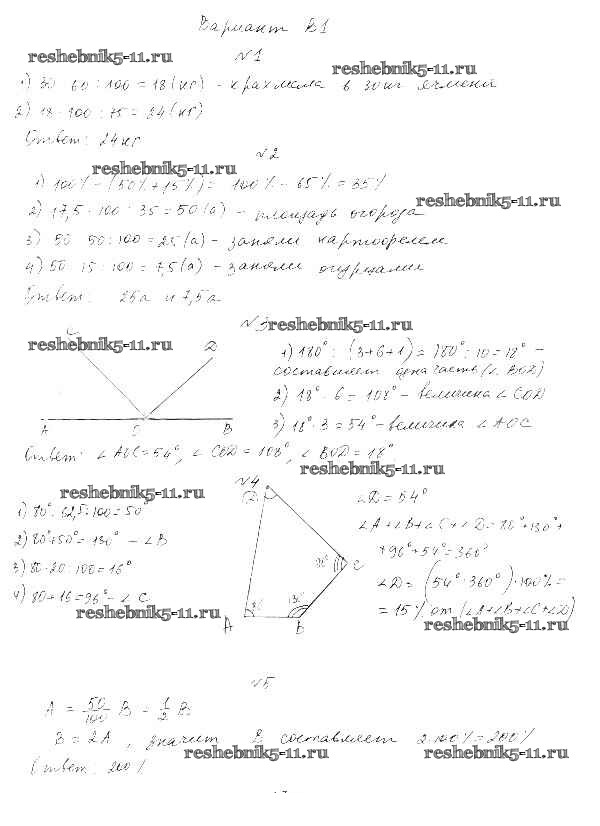 Вариант В1
№1
1) 30 · 60 : 100 = 18 (кг) - крахмала в 30 кг ячменя
2) 18 · 100 : 75 = 24 (кг)
Ответ: 24 кг
№2
1) 100% - (50% + 15%) = 100% - 65% = 35%
2) 17,5 · 100 : 35 = 50 (а) - площадь огорода
3) 50 · 50 : 100 = 25 (а) - заняли картофелем
4) 50 · 15 : 100 = 7,5 (а) - заняли огурцами
Ответ: 25а и 7,5а
№3
C D
A O B
1) 180° : (3+6+1) = 180° : 10 = 18° -
составляет одна часть (∠ BOD)
2) 18° · 6 = 108° - величина ∠ COD
3) 18° · 3 = 54° - величина ∠ AOC
Ответ: ∠ AOC = 54°, ∠ COD = 108°, ∠ BOD = 18°.
№4
1) 80° · 62,5 : 100 = 50°
2) 80° + 50° = 130° - ∠B
3) 80 · 20 : 100 = 16°
4) 80 + 16 = 96° - ∠ C
D
C
A B
∠D = 54°
∠A + ∠B + ∠C + ∠D = 80° + 130° +
+ 96° + 54° = 360°
∠D = (54° : 360°) · 100% =
= 15% от (∠A + ∠B + ∠C + ∠D)
№5
A = 50/100 B = 1/2 B
B = 2A, значит B составляет 2·100% = 200%
Ответ: 200%
reshebnik5-11.ru
reshebnik5-11.ru
reshebnik5-11.ru
reshebnik5-11.ru
reshebnik5-11.ru
reshebnik5-11.ru
reshebnik5-11.ru
reshebnik5-11.ru
reshebnik5-11.ru
reshebnik5-11.ru
reshebnik5-11.ru
reshebnik5-11.ru